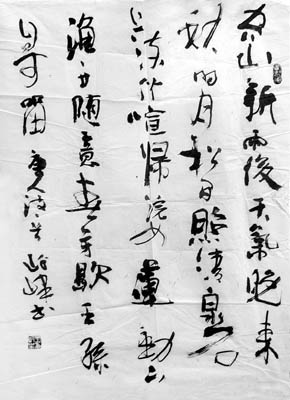 空山新雨後天氣晚來
秋明月松間照清泉石
上流竹喧歸浣女蓮動下
漁舟隨意春芳歇王孫
自可留 唐人詩 書